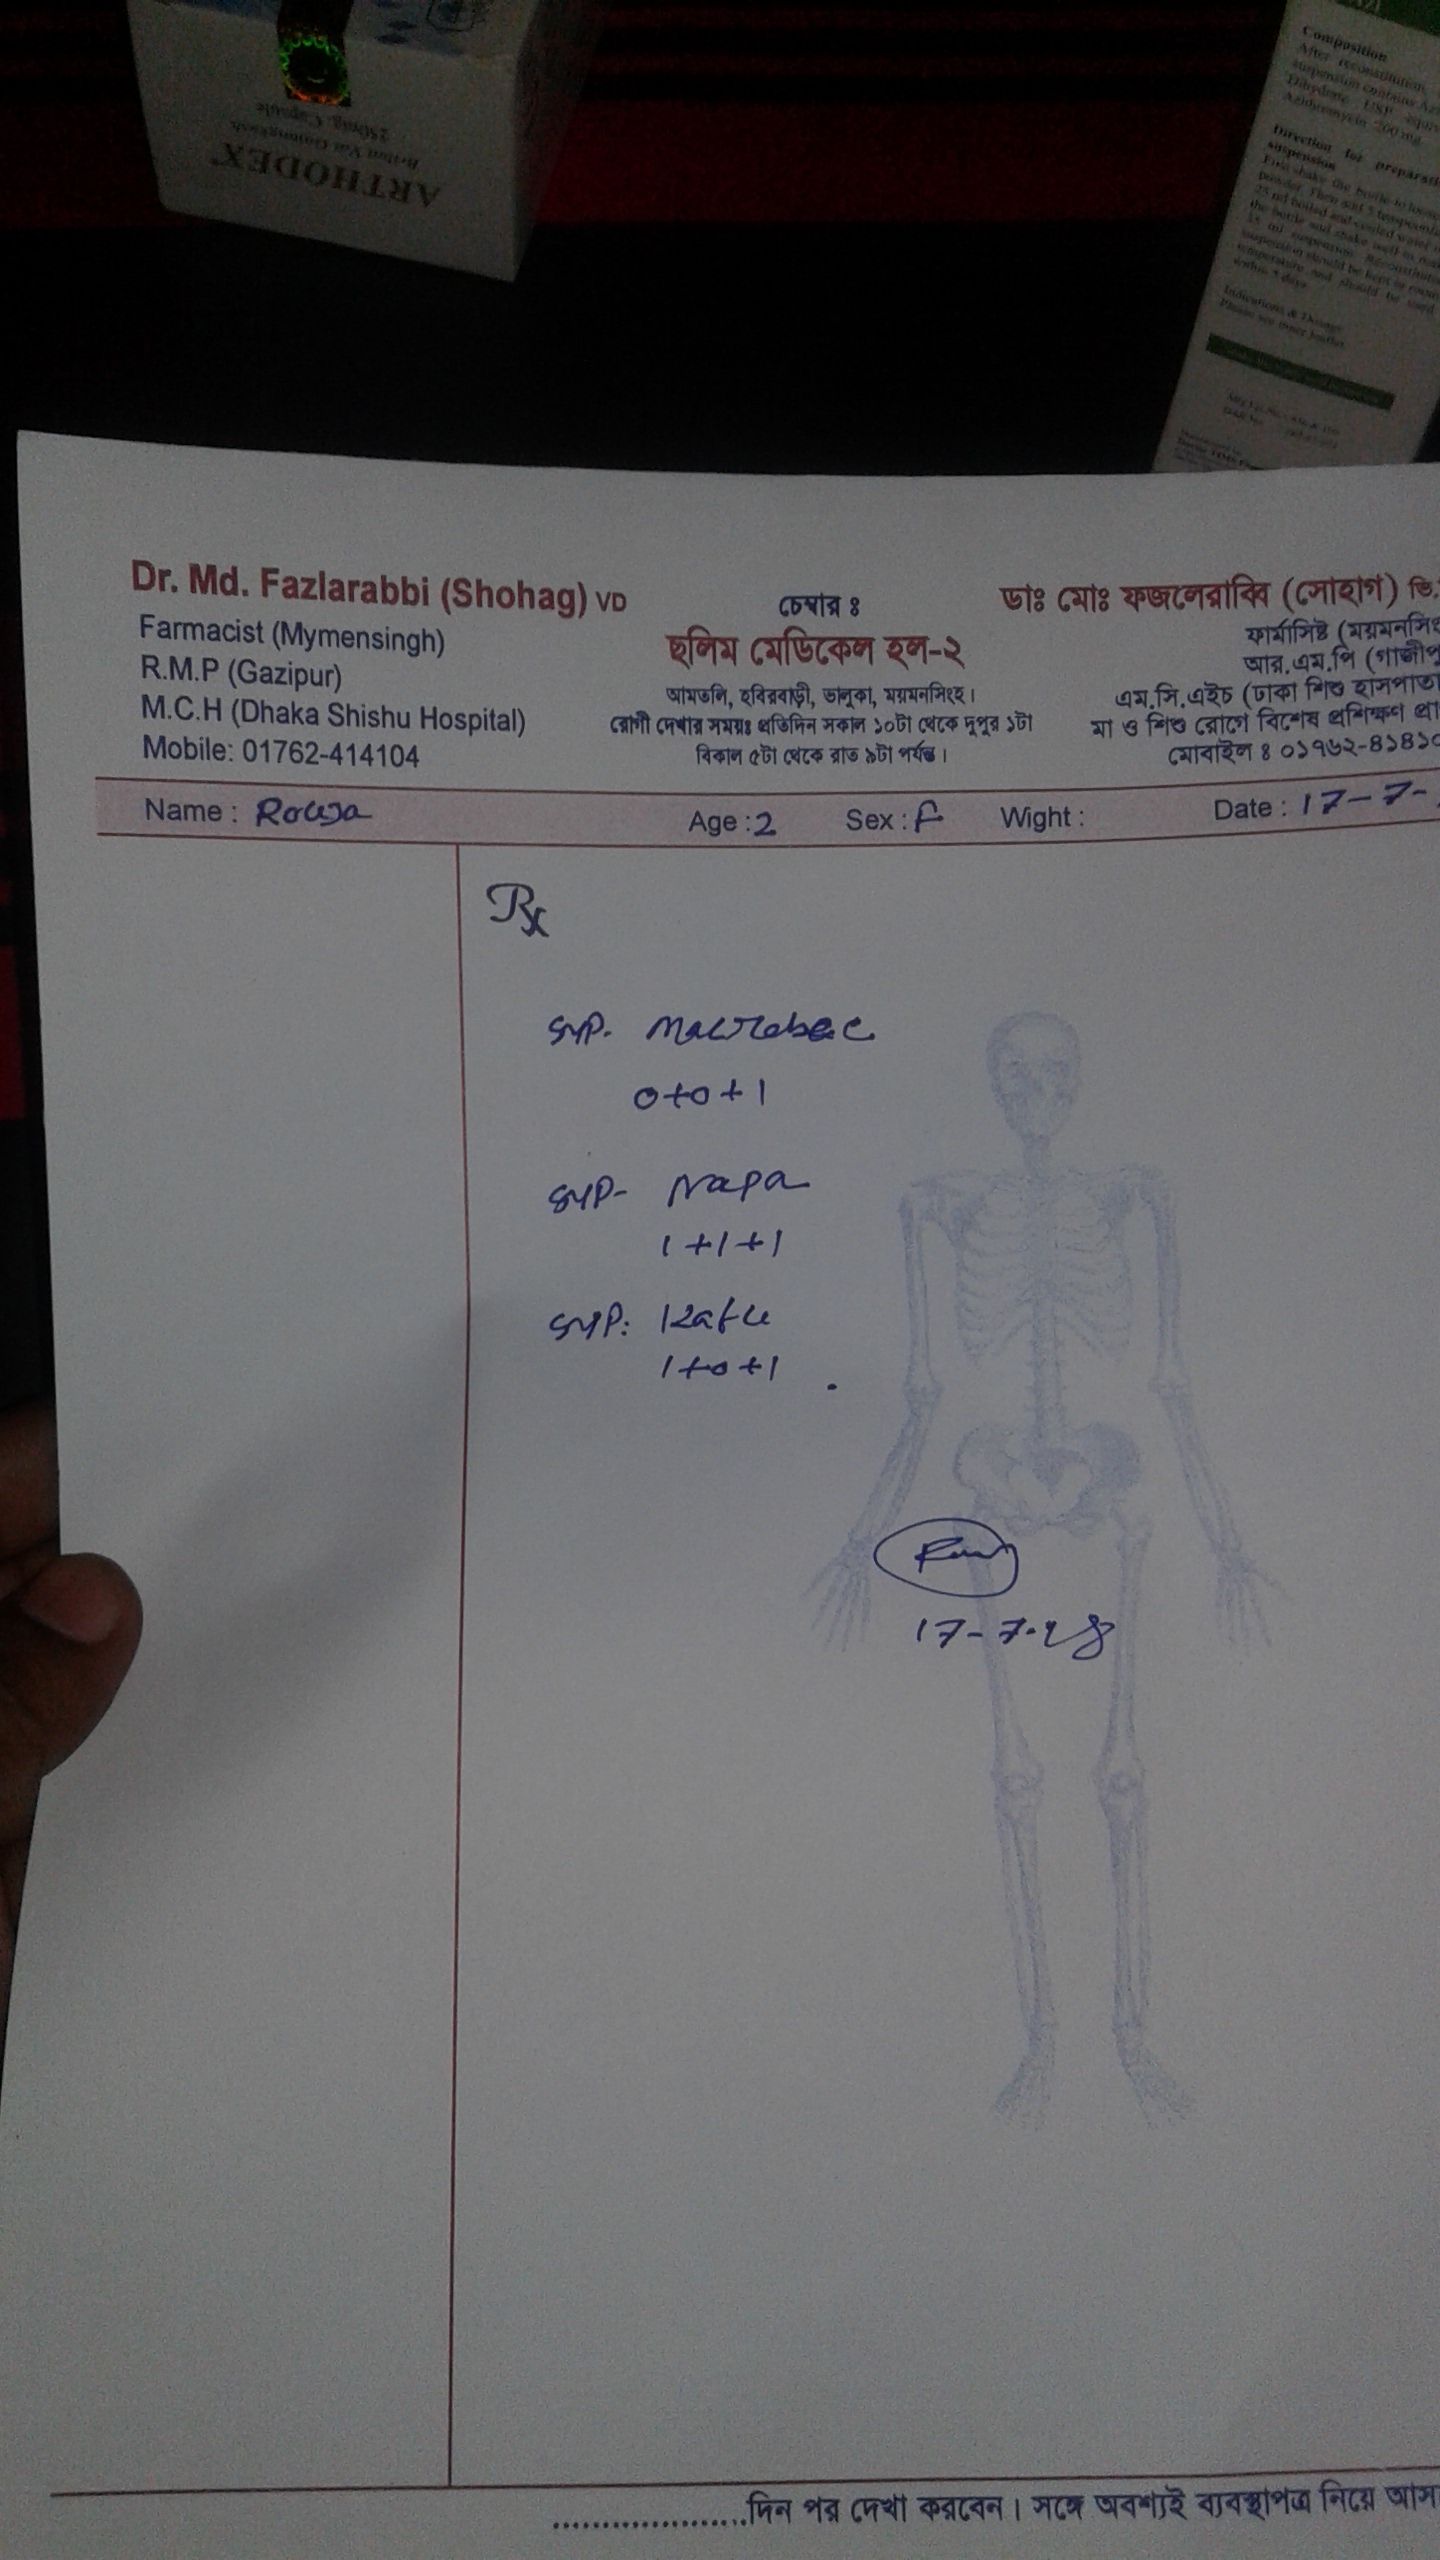 ARTHODEX
250mg. Capsule
Composition
After reconstitution
suspension contains
Dihydrate USP
Azithromycin 200 mg
Direction for preparati
suspension
First shake the bottle to
powder. Then add
boiled and cooled water
the bottle and shake well
ml suspension.
suspension should be kept
temperature and should be used
within 5 days
Indications & Dosage
Please see inner leaflet
Dr. Md. Fazlarabbi (Shohag) VD
Farmacist (Mymensingh)
R.M.P (Gazipur)
M.C.H (Dhaka Shishu Hospital)
Mobile: 01762-414104
চেম্বার ঃ
ছলিম মেডিকেল হল-২
আমতলি, হবিরবাড়ী, ভালুকা, ময়মনসিংহ।
রোগী দেখার সময়ঃ প্রতিদিন সকাল ১০টা থেকে দুপুর ১টা
বিকাল ৫টা থেকে রাত ৯টা পর্যন্ত।
ডাঃ মোঃ ফজলেরাব্বি (সোহাগ) ভি.
ফার্মাসিষ্ট (ময়মনসিং
আর.এম.পি (গাজীপু
এম.সি.এইচ (ঢাকা শিশু হাসপাতা
মা ও শিশু রোগে বিশেষ প্রশিক্ষণ প্রা
মোবাইল ঃ ০১৭৬২-৪১৪১০
Name : Age : 2 Sex : F Wight : Date : 17-7-
Rx
syp.
0+0+1
syp- Napa
1+1+1
syp:
1+0+1
17-7-
....................দিন পর দেখা করবেন। সঙ্গে অবশ্যই ব্যবস্থাপত্র নিয়ে আস